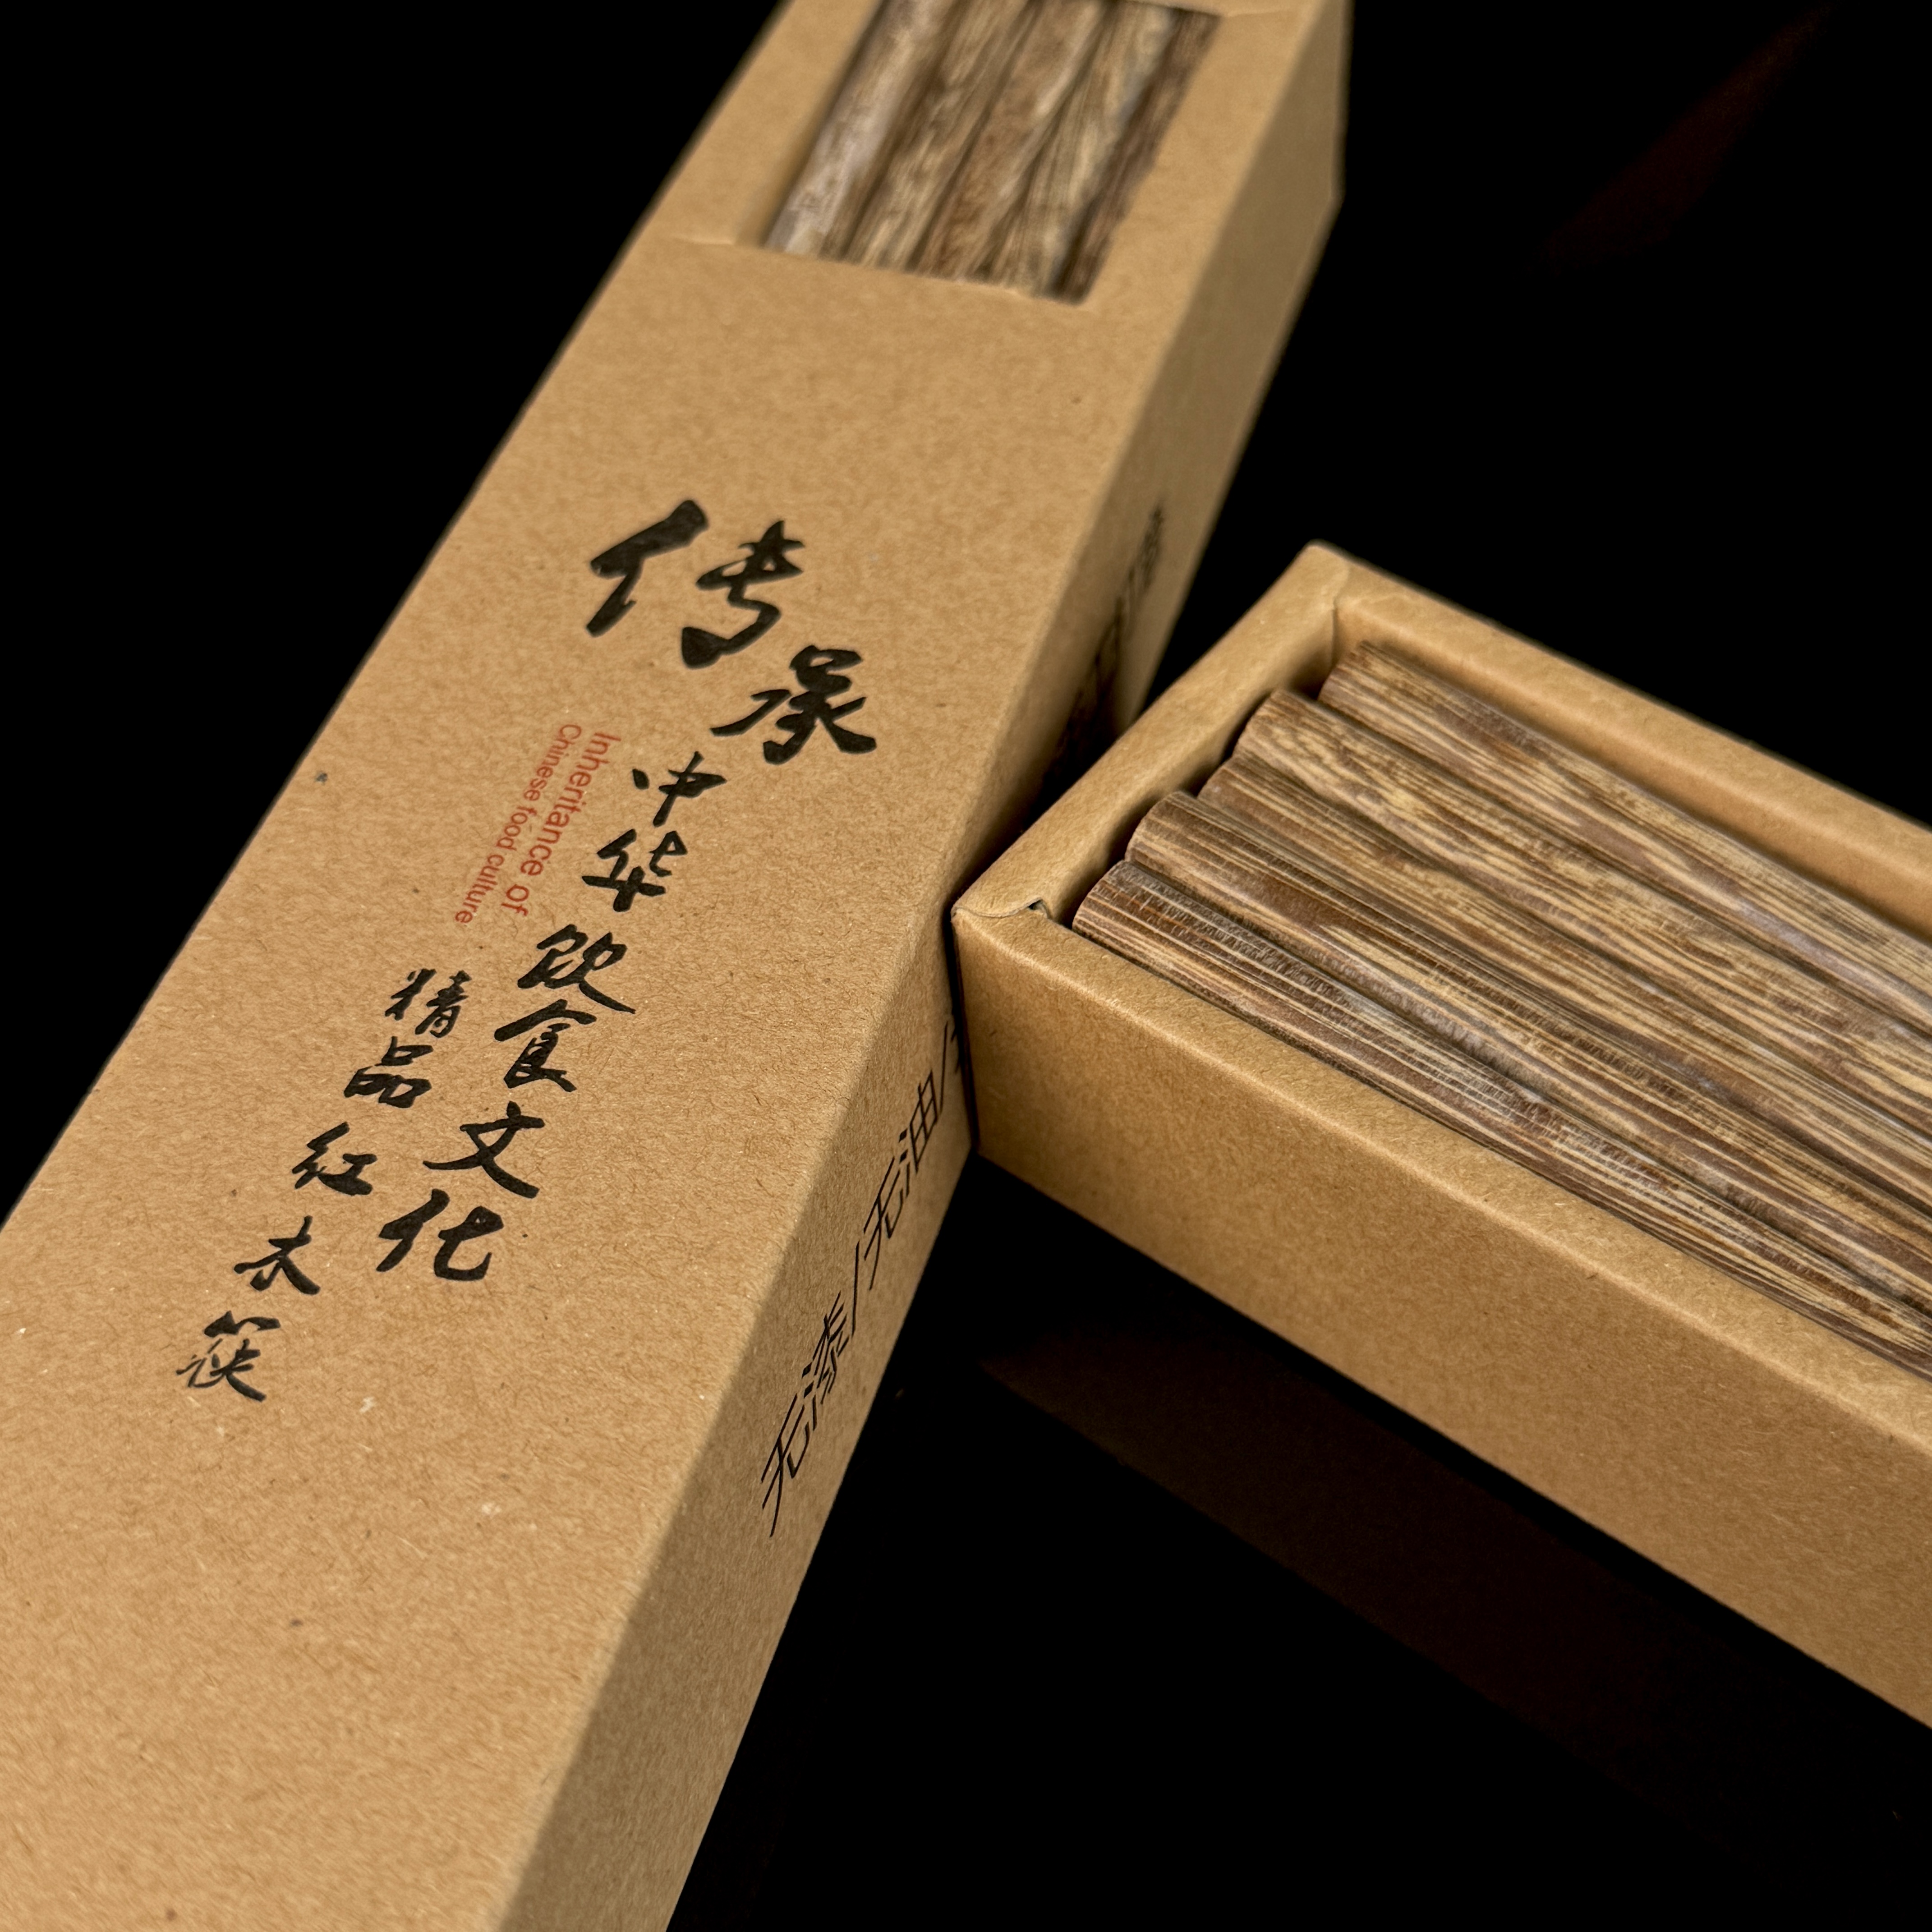 传承
中华饮食文化
Inheritance of
Chinese food culture
精品红木筷
无漆/无油/